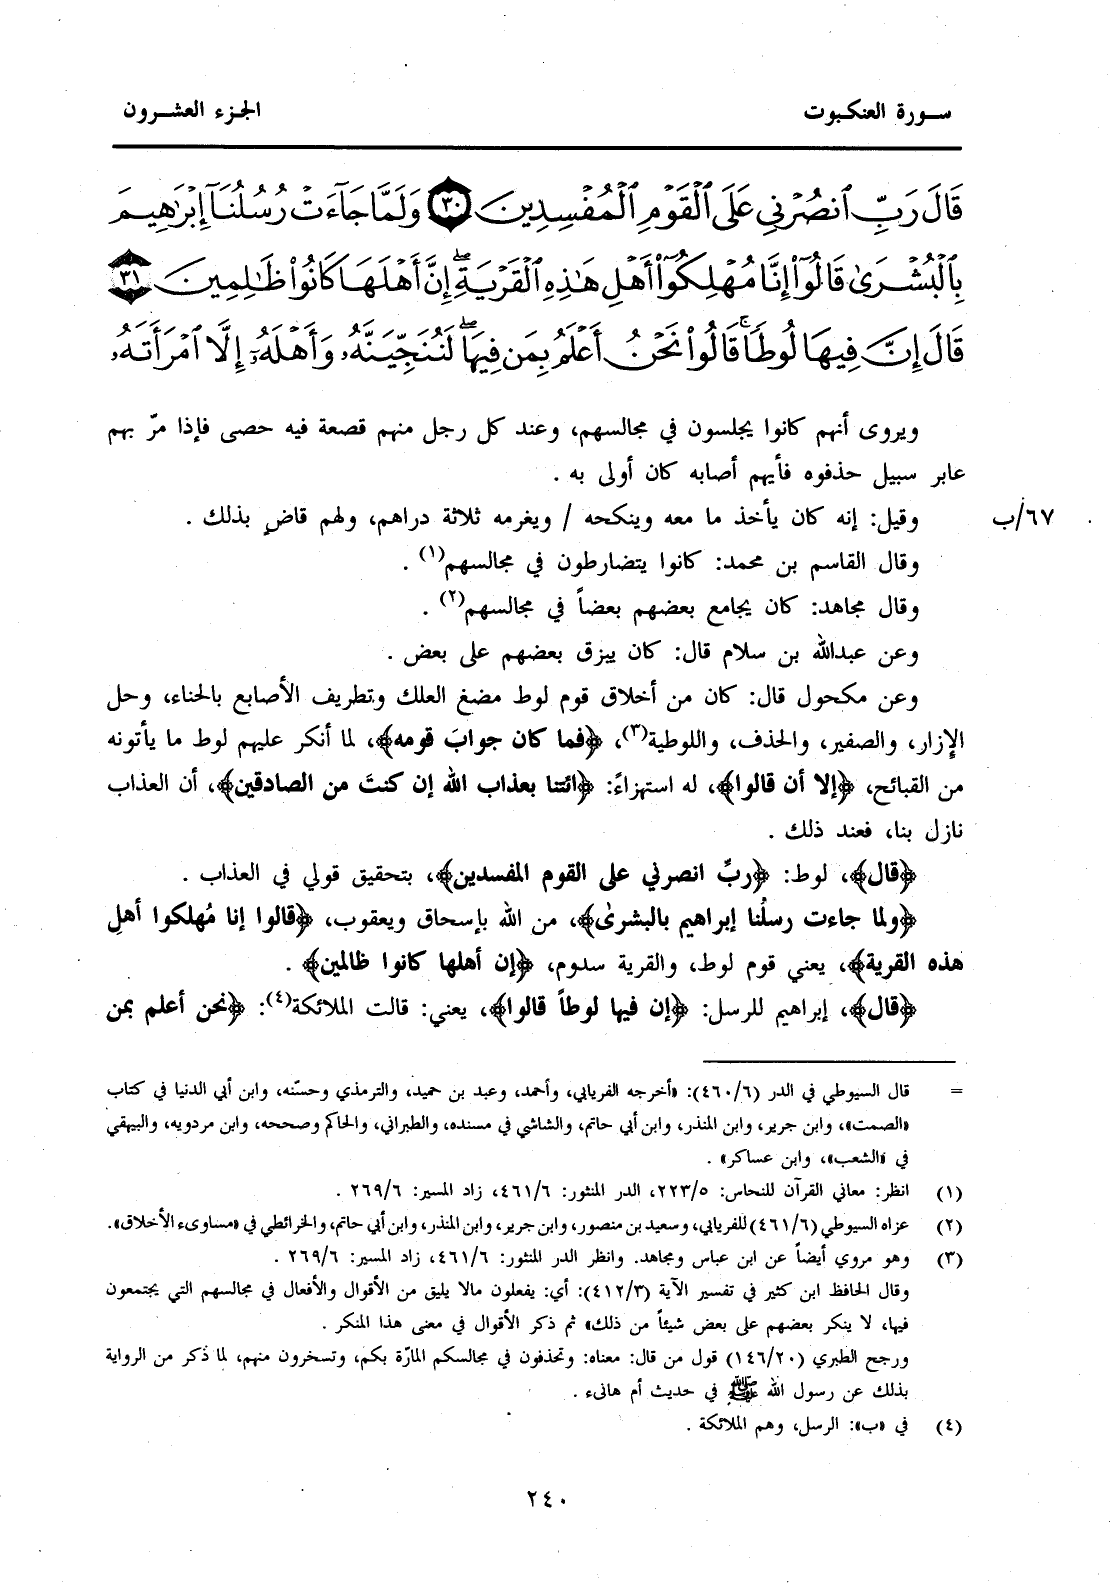 سورة العنكبوت
الجزء العشرون
قَالَ رَبِّ ٱنصُرۡنِي عَلَى ٱلۡقَوۡمِ ٱلۡمُفۡسِدِينَ ٣٠ وَلَمَّا جَآءَتۡ رُسُلُنَآ إِبۡرَٰهِيمَ
بِٱلۡبُشۡرَىٰ قَالُوٓاْ إِنَّا مُهۡلِكُوٓاْ أَهۡلِ هَٰذِهِ ٱلۡقَرۡيَةِۖ إِنَّ أَهۡلَهَا كَانُواْ ظَٰلِمِينَ ٣١
قَالَ إِنَّ فِيهَا لُوطٗاۚ قَالُواْ نَحۡنُ أَعۡلَمُ بِمَن فِيهَاۖ لَنُنَجِّيَنَّهُۥ وَأَهۡلَهُۥٓ إِلَّا ٱمۡرَأَتَهُۥ
ويروى أنهم كانوا يجلسون في مجالسهم، وعند كل رجل منهم قصعة فيه حصى فإذا مرّ بهم
عابر سبيل حذفوه فأيهم أصابه كان أولى به .
وقيل: إنه كان يأخذ ما معه وينكحه / ويغرمه ثلاثة دراهم، ولهم قاضٍ بذلك .
٦٧/ب
وقال القاسم بن محمد: كانوا يتضارطون في مجالسهم(١) .
وقال مجاهد: كان يجامع بعضهم بعضاً في مجالسهم(٢) .
وعن عبدالله بن سلام قال: كان يبزق بعضهم على بعض .
وعن مكحول قال: كان من أخلاق قوم لوط مضغ العلك وتطريف الأصابع بالحناء، وحل
الإزار، والصفير، والحذف، واللوطية(٣)، ﴿فما كان جوابَ قومه﴾، لما أنكر عليهم لوط ما يأتونه
من القبائح، ﴿إلا أن قالوا﴾، له استهزاءً: ﴿ائتنا بعذاب الله إن كنتَ من الصادقين﴾، أن العذاب
نازل بنا، فعند ذلك .
﴿قال﴾، لوط: ﴿ربِّ انصرني على القوم المفسدين﴾، بتحقيق قولي في العذاب .
﴿ولما جاءت رسلُنا إبراهيم بالبشرىٰ﴾، من الله بإسحاق ويعقوب، ﴿قالوا إنا مُهلكوا أهلِ
هذه القرية﴾، يعني قوم لوط، والقرية سدوم، ﴿إن أهلها كانوا ظالمين﴾ .
﴿قال﴾، إبراهيم للرسل: ﴿إن فيها لوطاً قالوا﴾، يعني: قالت الملائكة(٤): ﴿نحن أعلم بمن
= قال السيوطي في الدر (٤٦٠/٦): «أخرجه الفريابي، وأحمد، وعبد بن حميد، والترمذي وحسّنه، وابن أبي الدنيا في كتاب
«الصمت»، وابن جرير، وابن المنذر، وابن أبي حاتم، والشاشي في مسنده، والطبراني، والحاكم وصححه، وابن مردويه، والبيهقي
في «الشعب»، وابن عساكر» .
(١) انظر: معاني القرآن للنحاس: ٢٢٣/٥، الدر المنثور: ٤٦١/٦، زاد المسير: ٢٦٩/٦ .
(٢) عزاه السيوطي (٤٦١/٦) للفريابي، وسعيد بن منصور، وابن جرير، وابن المنذر، وابن أبي حاتم، والخرائطي في «مساوىء الأخلاق».
(٣) وهو مروي أيضاً عن ابن عباس ومجاهد. وانظر الدر المنثور: ٤٦١/٦، زاد المسير: ٢٦٩/٦ .
وقال الحافظ ابن كثير في تفسير الآية (٤١٢/٣): أي: يفعلون مالا يليق من الأقوال والأفعال في مجالسهم التي يجتمعون
فيها، لا ينكر بعضهم على بعض شيئاً من ذلك» ثم ذكر الأقوال في معنى هذا المنكر .
ورجح الطبري (١٤٦/٢٠) قول من قال: معناه: وتحذفون في مجالسكم المارّة بكم، وتسخرون منهم، لما ذكر من الرواية
بذلك عن رسول الله ﷺ في حديث أم هانىء .
(٤) في «ب»: الرسل، وهم الملائكة .
٢٤٠